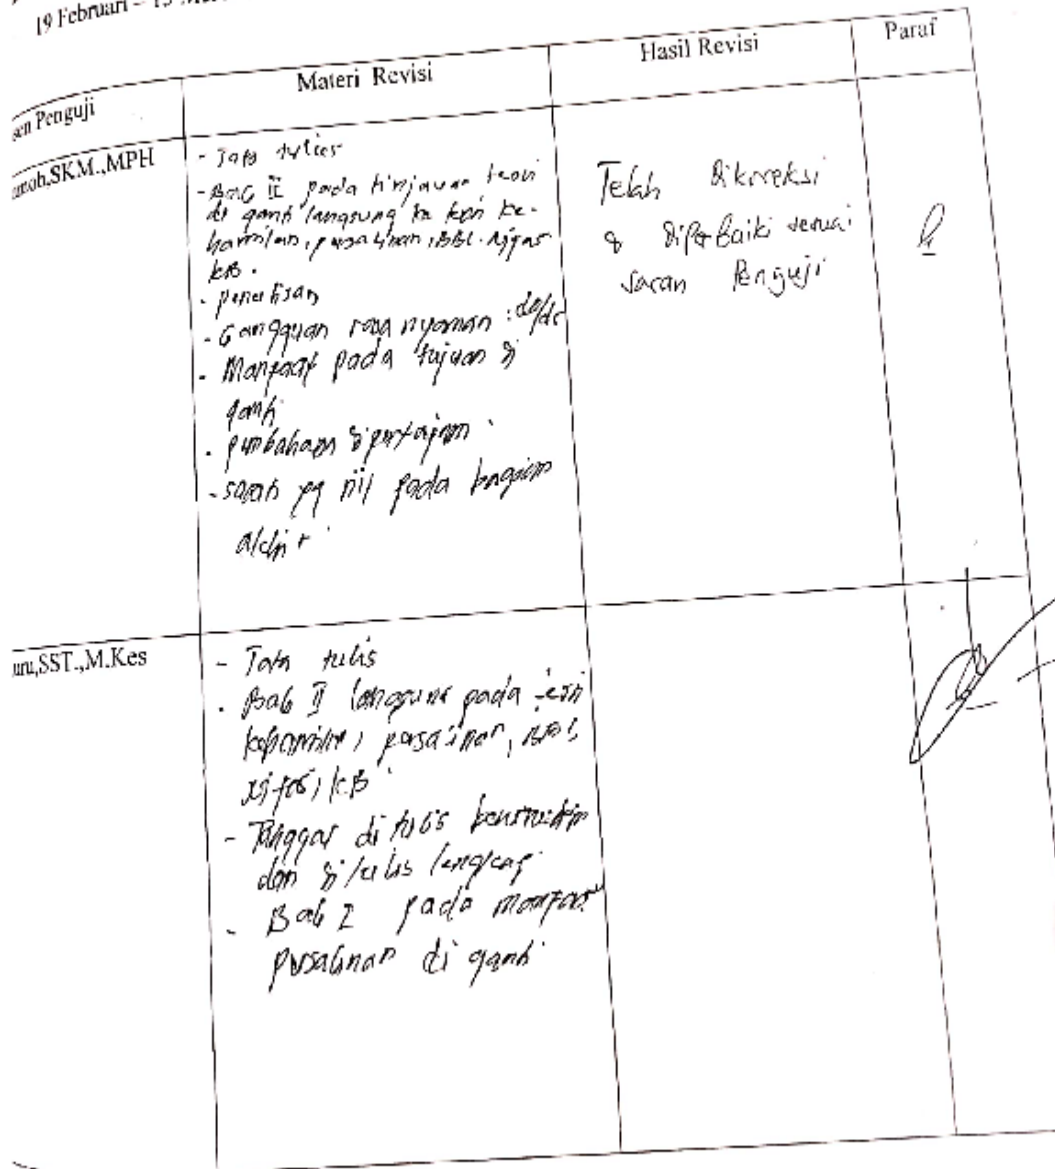 19 Februari – 15
Materi Revisi
Hasil Revisi
Paraf
sen Penguji
SKM.,MPH
- Tata tulis
- Bab II pada tinjauan teori
di ganti langsung ke teori ke-
hamilan, persalinan, BBL. Nifas
KB.
- penulisan
- Gangguan rasa nyaman : do/ds
- Manfaat pada tujuan di
ganti
- pembahasan dipertajam
- saran yg pada bagian
akhir
Telah dikoreksi
& diperbaiki sesuai
saran Penguji
uru,SST.,M.Kes
- Tata tulis
- Bab II langsung pada teori
kehamilan, persalinan, BBL,
nifas, KB
- Tanggal di tulis
dan di tulis lengkap
- Bab I pada manfaat
persalinan di ganti